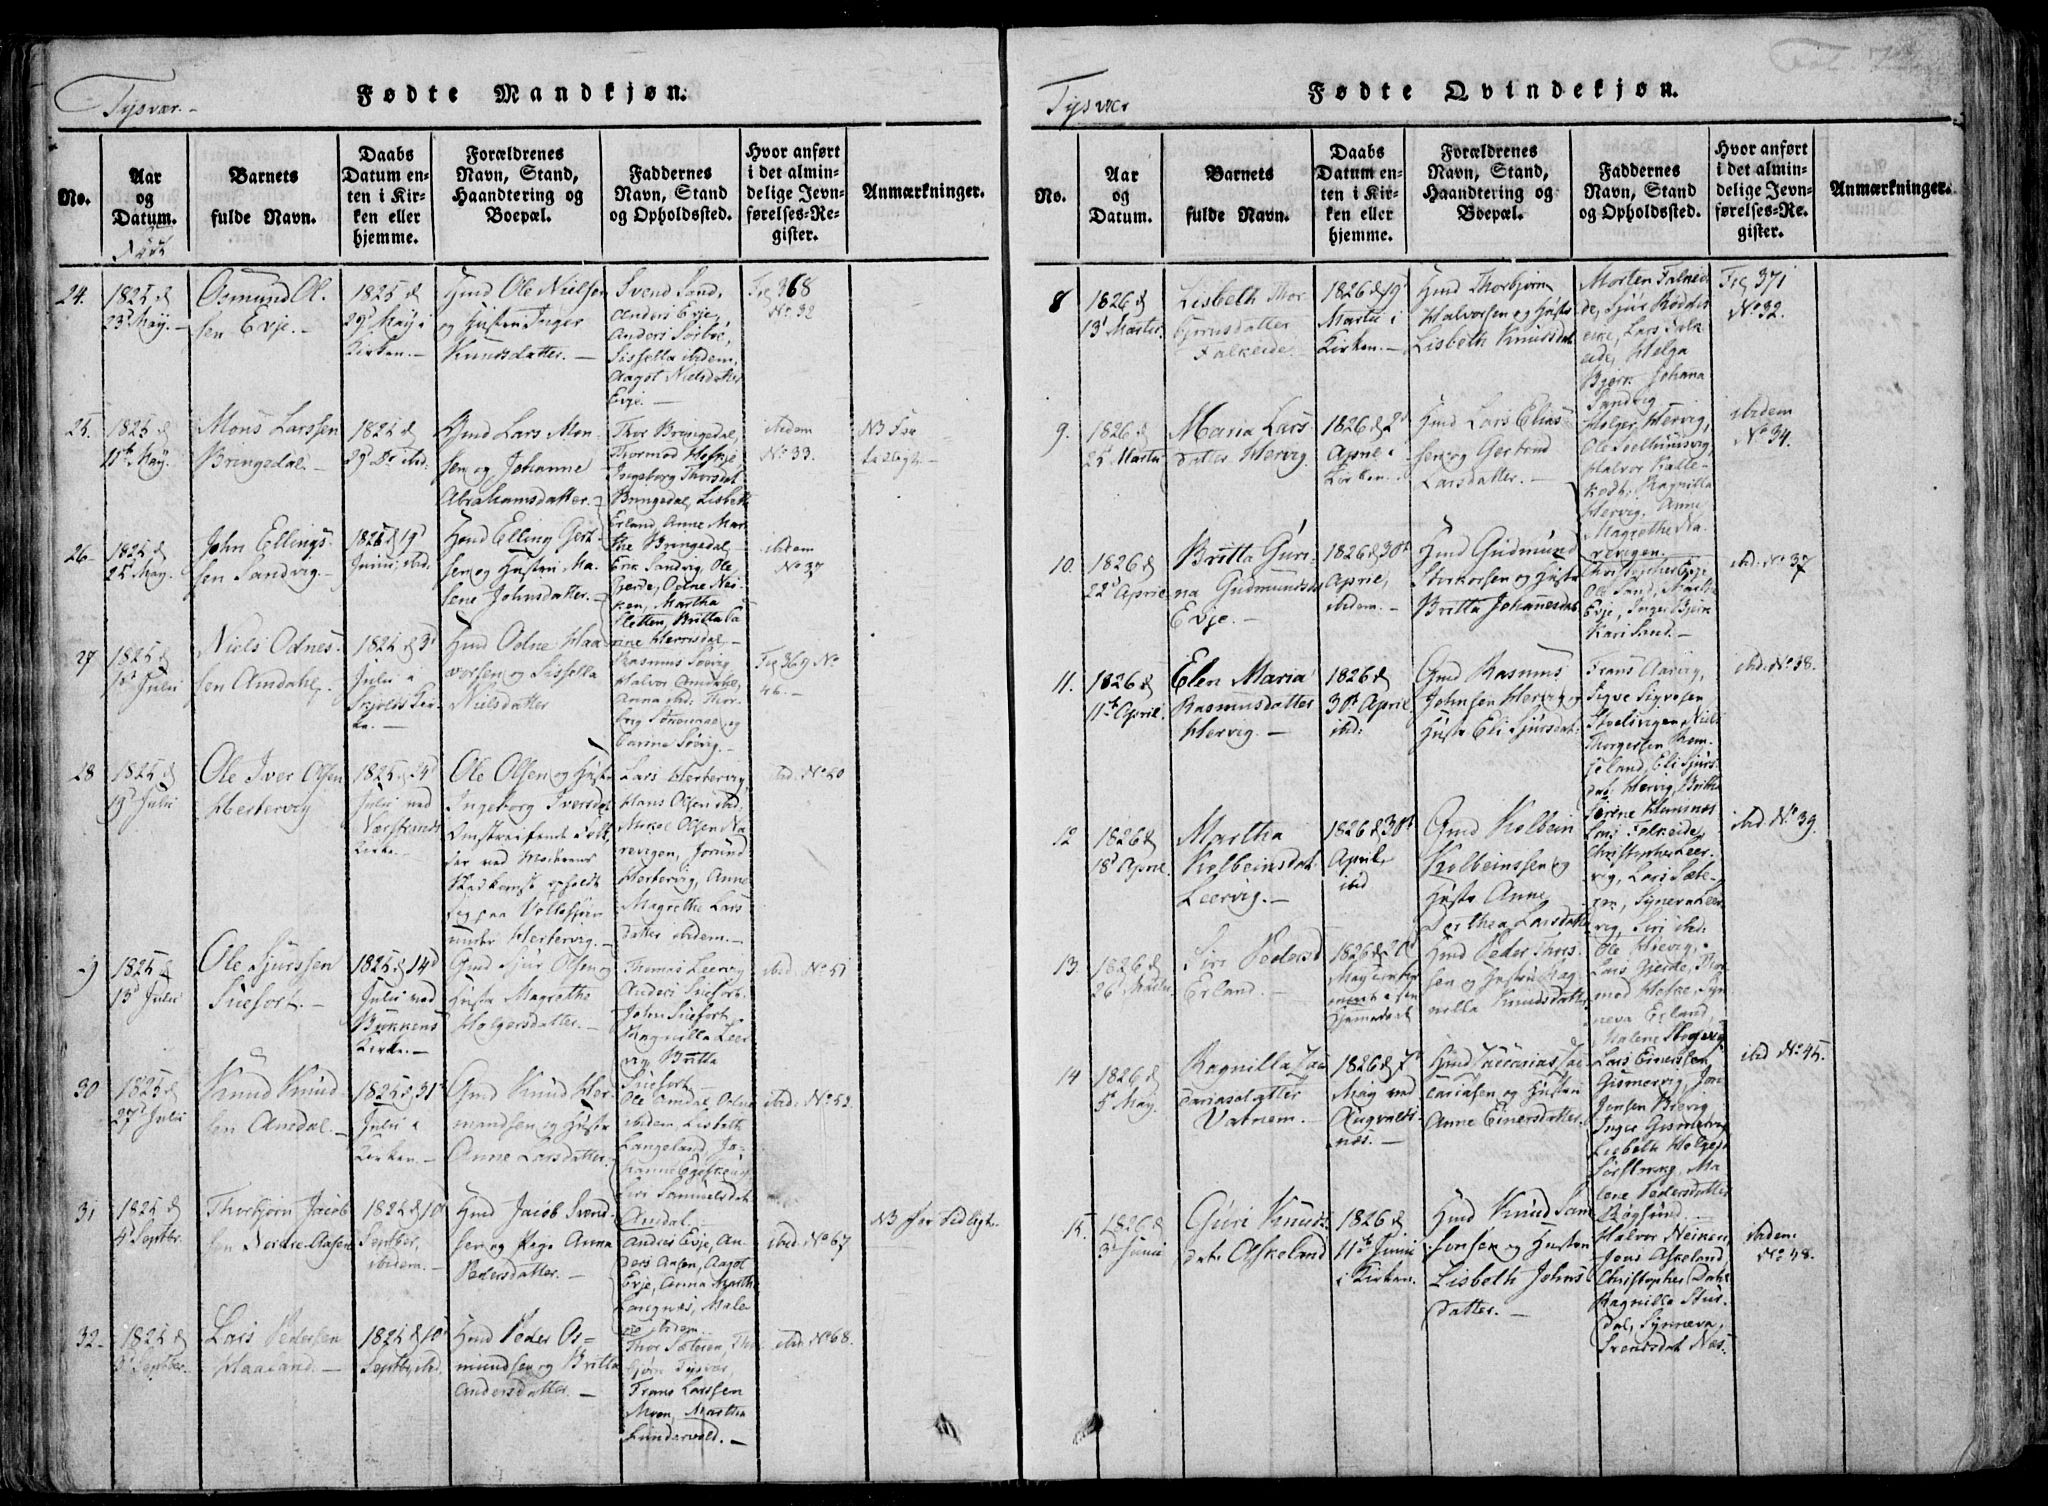 Tysvær.
Fødte Mandkjøn.
No.
Aar
og
Datum.
Barnets
fulde Navn.
Daabs
Datum en-
ten i Kir-
ken eller
hjemme.
Forældrenes
Navn, Stand,
Haandtering og
Boepæl.
Faddernes
Navn, Stand
og Opholdssted.
Hvor anført
i det almin-
delige Jevn-
førelses-Re-
gister.
Anmærkninger.
24.
1825 d
23d May.
Osmund Ol-
sen Evje.
1825 d
29d May i
Kirken.
Gmd Ole Nielsen
og Hustru Inger
Knudsdatter.
Svend Sand,
Anders Evje,
Anders Sørbøe,
Sissella ibidem,
Aagot Nielsdatter
Evje.
Fol 368
No. 32
25.
1825 d
11te May.
Mons Larssen
Bringedal.
1825 d
29d Do ibd.
Gmd Lars Mon-
sen og Johanne
Abrahamsdatter.
Thor Bringedal,
Thormod Heskje,
Ingeborg Thorsdat
Bringedal, Lisbeth
Erland, Anne Mar-
the Bringedal.
ibidem
No. 33.
26.
1825 d
25 May.
John Ellings-
sen Sandvig.
1825 d 19d
Junii, ibd.
Hmd Elling Gert-
sen og Hustru Ma-
lene Johnsdatter.
Erik Sandvig, Ole
Gjerde, Odne Nei-
ken, Martha
Sletten, Britta Ca-
rine Hervisdal.
ibidem
No. 37
27
1825 d
1d Julii
Niels Odnes-
sen Amdahl.
1825 d 3d
Julii i
Skjolds Kir-
ke.
Gmd Odne Haa-
vorsen og Sissella
Nielsdatter
Rasmus Søvig
Halvor Amdahl,
Anna ibd. Thor-
Carine Søvig.
Fol 369 No
46.
28
1825 d
19d Julii
Ole Iver Olsen
Hertervig
1825 d 24d
Julii ved
Nærstrands
Kirke.
Ole Olsen og Hustr
Ingeborg Iversdat
Omstreifende Folk,
der ved Moderens
opholdt
sig paa
under Hertervig.
Lars Hertervig,
Hans Olsen ibd.
Mikel Olsen Na-
revigen, Jorund
Hertervig, Anne
Magrethe Lars
datter ibidem.
ibd. No. 50
9
1825 d
13d Julii
Ole Sjurssen
Suefort.
1825 d 14d
Julii ved
Bukkens
Kirke.
Gmd Sjur Olsen og
Hustr Magrethe
Holgersdatter.
Thomas Leervig
Anders Suefort.
John Suefort.
Magnilla Leer
vig Britta
Suefort.
ibid. No. 51
30
1825 d
27d Julii
Knud Knud-
sen Amdal.
1825 d 31
Julii i
Kirken.
Gmd Knud Her-
mandsen og Hustr
Anne Larsdatter.
Ole Amdal, Odne
ibidem, Lisbeth
Langeland, Jo-
hanne
Siri Samuelsdat
Amdal.
ibid. No. 52.
31
1825 d
4d Septbr.
Thorbjørn Jacob-
sen Aasen
1825 d 10d
Septber,
ibidem.
Hmd Jacob Svend-
sen og Pige Anna
Pedersdatter.
Anders Evje, An-
ders Aasen, Aagot
Evje, Anna Marthe
Langnæs, Male-
ne ibidem.
ibid. No. 67
32.
1825 d
3d Septber.
Lars Pedersen
Haaland.
1825 d 10d
Septbr, ibd.
Hmd Peder Os-
mundsen og Britta
Andersdatter.
Thor Sæteren, Thor
bjørn Tysvær,
Frans Larssen
Moen, Martha
Sundervold.
ibid. No. 68.
Tysvær
Fødte Qvindekjøn.
No.
Aar
og
Datum.
Barnets
fulde Navn.
Daabs
Datum en-
ten i Kir-
ken eller
hjemme.
Forældrenes
Navn, Stand,
Haandtering og
Boepæl.
Faddernes
Navn, Stand
og Opholdssted.
Hvor anført
i det almin-
delige Jevn-
førelses-Re-
gister.
Anmærkninger.
8
1826 d
13d Martii.
Lisbeth Thor-
bjørnsdatter
Falkeide.
1826 d 19d
Martii i
Kirken.
Hmd Thorbjørn
Halvorsen og Hustr
Lisbeth Knudsdat.
Morten Falkei-
de, Sjur
Lars Falk-
eide, Helga
Bjerk Johana
Sandvig
Fol 371
No. 32.
9.
1826 d
25 Martii
Maria Lars-
datter Hervig.
1826 d 2d
April i
Kirken.
Hmd Lars Elias-
sen og Gertrud
Larsdatter.
Holger Hervig,
Halvor Kalle-
kodt, Ragnilla
Hervig, Anne
Magrethe Na-
revigen.
ibidem
No. 34.
10.
1826 d
22d April.
Britta Guri-
na Gudmundsdat
Evje.
1826 d 30te
April,
ibidem.
Hmd Gudmund
Storkorsen og Hustr
Britta Johanesdat
Christopher Evje
Ole Sand, Martha
Evje, Inger Bjerk
Kari Sand.
ibd. No. 37
11.
1826 d
11te April.
Elen Maria
Rasmusdatter
Hervig.
1826 d
30te April
ibd:
Gmd Rasmus
Johnsen Hervig og
Hustr Eli Sjursdat:
Frans Aarvig,
Sigve Sigvesen
Stoelsvigen, Niels
Thorgersen Rem-
jeland, Eli Sjurs-
dat: Hervig, Britta
Serene Hemnæs
ibd. No. 38.
12
1826 d
18d April.
Martha
Kolbeinsdat.
Leervig.
1826 d 30te
April,
ibid
Gmd Kolbein
Kolbeinssen og
Hustr Anne
Dorthea Larsdatter
Lars Falkeide,
Christopher Leer-
vig, Lars Sæte-
ren, Syneva Leer
vig, Siri ibd:
ibid No. 39.
13.
1826 d
26 Martii.
Siri Pedersd
Erland.
Hmd Peder Thors-
sen og Hustru Mag-
nilla Knudsdatter
Lars Gjerde, Thor-
mod Heskje, Syn-
neva Erland,
14
1826 d
5d May.
Ragnilla Zac-
cariasdatter
Vatnem.
1826 d 7d
May ved
Augvalds-
næs.
Hmd Zaccarias Zac-
cariasen og Hustru
Anne Einersdatter.
Lars Einerssen
Gismervig, Jon
Jensen Brevig
Inger Gismervig
Lisbeth Holgers
Ma-
lene Pedersdatter
Røgsund.
ibid No. 45.
15.
1826 d
3d Junii
Guri Knuds-
datr Askeland
1826 d
11te Junii
i Kirken.
Hmd Knud Sam-
sonsen og Hustru
Lisbeth Johns-
datter.
Halvor Neiken,
Jens Askeland
Christopher Dahl
Ragnilla Stur-
dal, Synneva,
Svensdat Næs.
ibidem
No. 48.